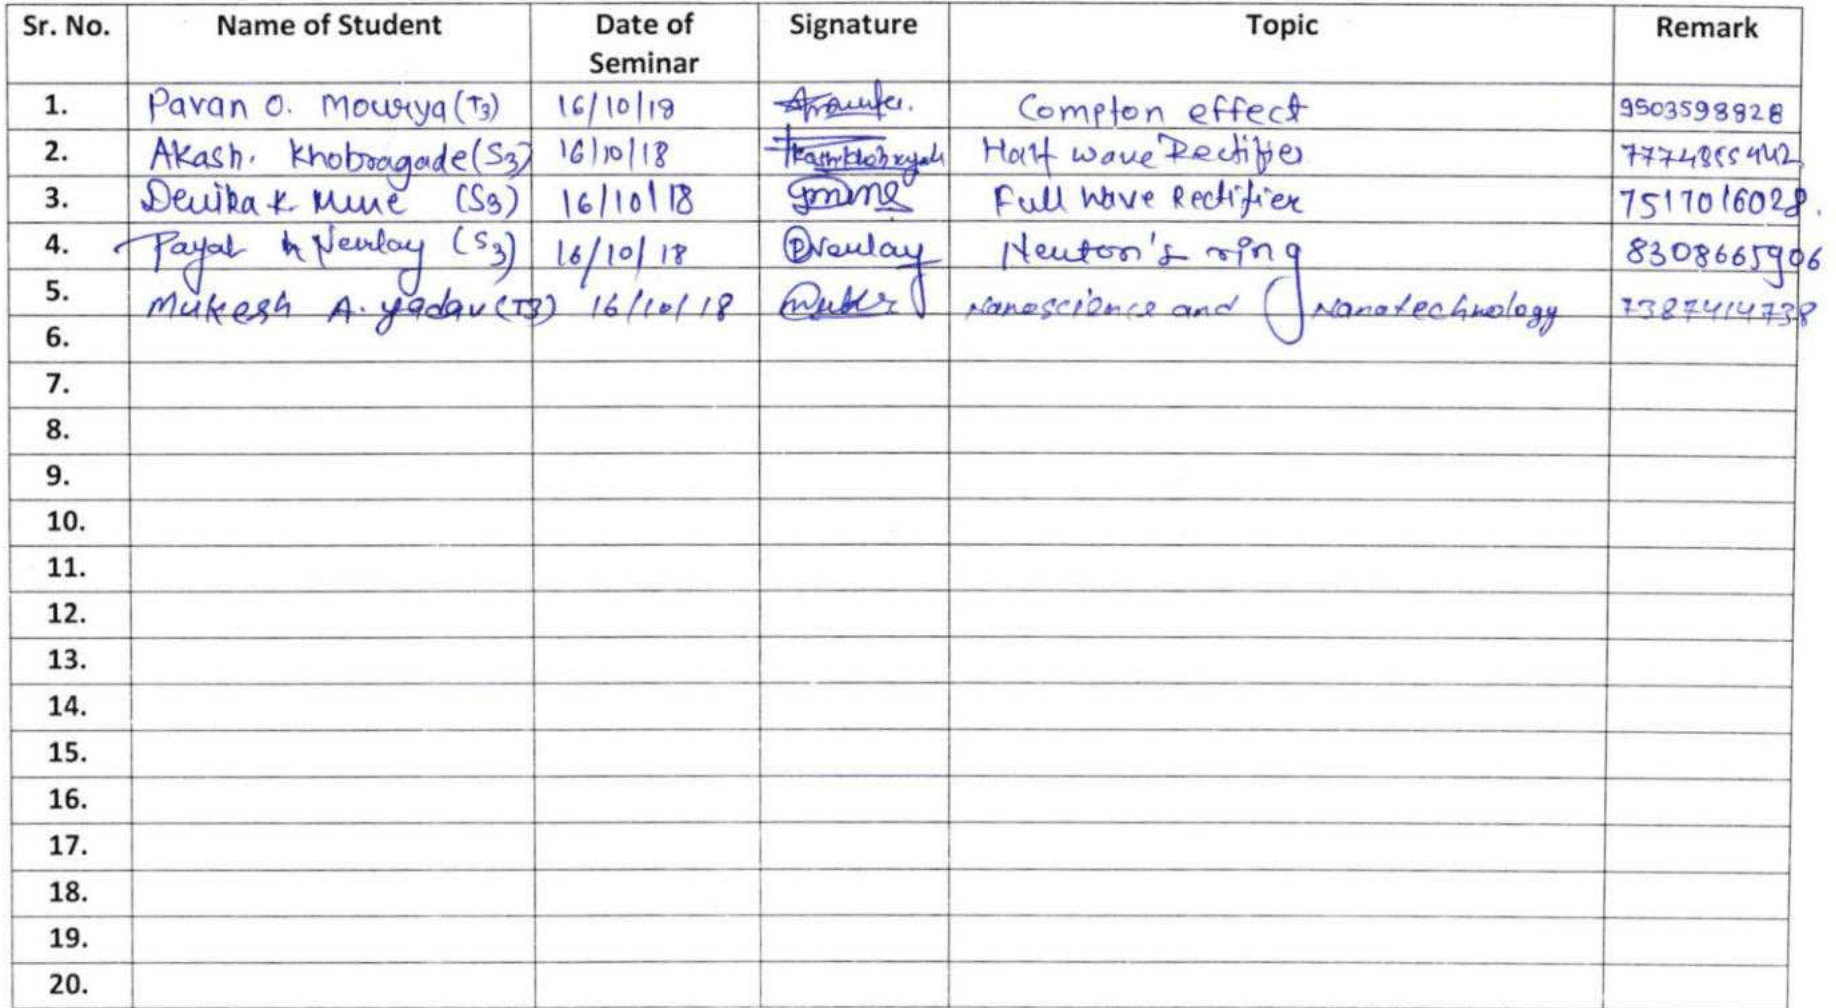 Sr. No. Name of Student Date of Seminar Signature Topic Remark
1. Pavan O. Mourya (T3) 16/10/18 Compton effect 9503598828
2. Akash. Khobragade (S3) 16/10/18 Half wave Rectifier 7774855442
3. Devika K. Mune (S3) 16/10/18 Full Wave Rectifier 7517016028.
4. Payal (S3) 16/10/18 Newton's ring 8308665906
5. Mukesh A. Yadav (T3) 16/10/18 Nanoscience and Nanotechnology 7387414738
6.
7.
8.
9.
10.
11.
12.
13.
14.
15.
16.
17.
18.
19.
20.